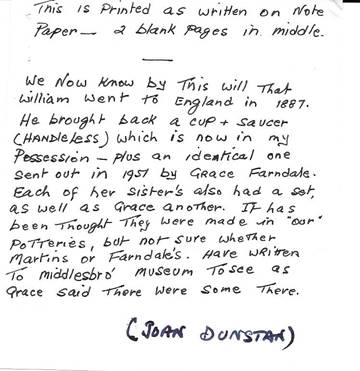 This is Printed as written on Note
Paper — 2 blank Pages in middle.
We Now Know by This will That
William went To England in 1887.
He brought back a cup + saucer
(HANDLELESS) which is now in my
Possession – plus an identical one
sent out in 1951 by Grace Farndale.
Each of her sister's also had a set,
as well as Grace another. IT has
been Thought They were made in "our"
PoTTeries, but not sure whether
Martins or Farndale's. Have written
To Middlesbro' museum To see as
Grace said There were some There.
(JOAN DUNSTAN)